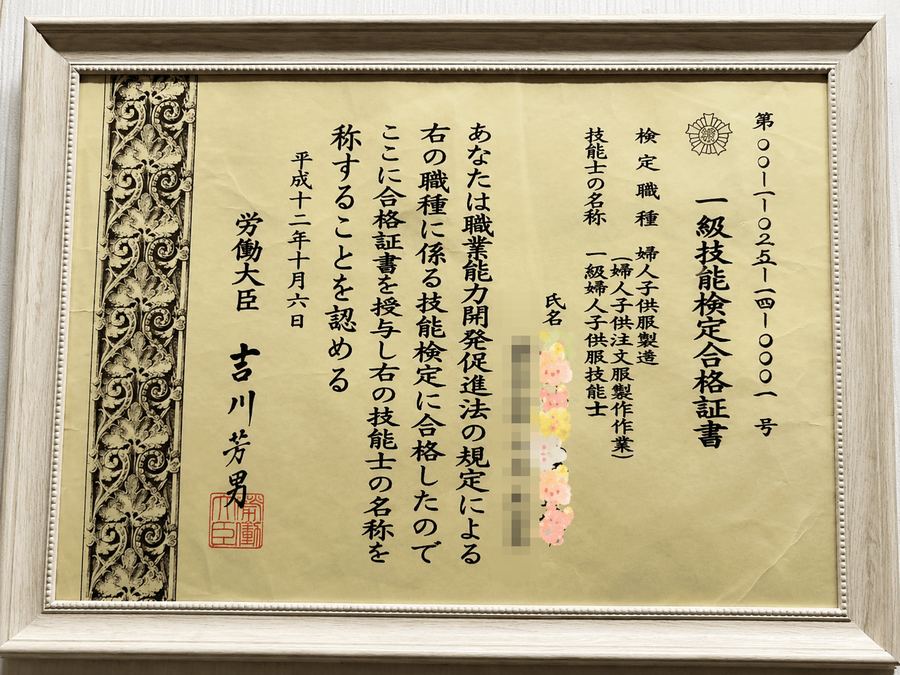 第〇〇一一一〇二五一一四一〇〇〇一号
一級技能検定合格証書
検定職種 婦人子供服製造
(婦人子供注文服製作作業)
技能士の名称 一級婦人子供服技能士
氏名
あなたは職業能力開発促進法の規定による
右の職種に係る技能検定に合格したので
ここに合格証書を授与し右の技能士の名称を
称することを認める
平成十二年十月六日
労働大臣 吉川芳男
労働大臣